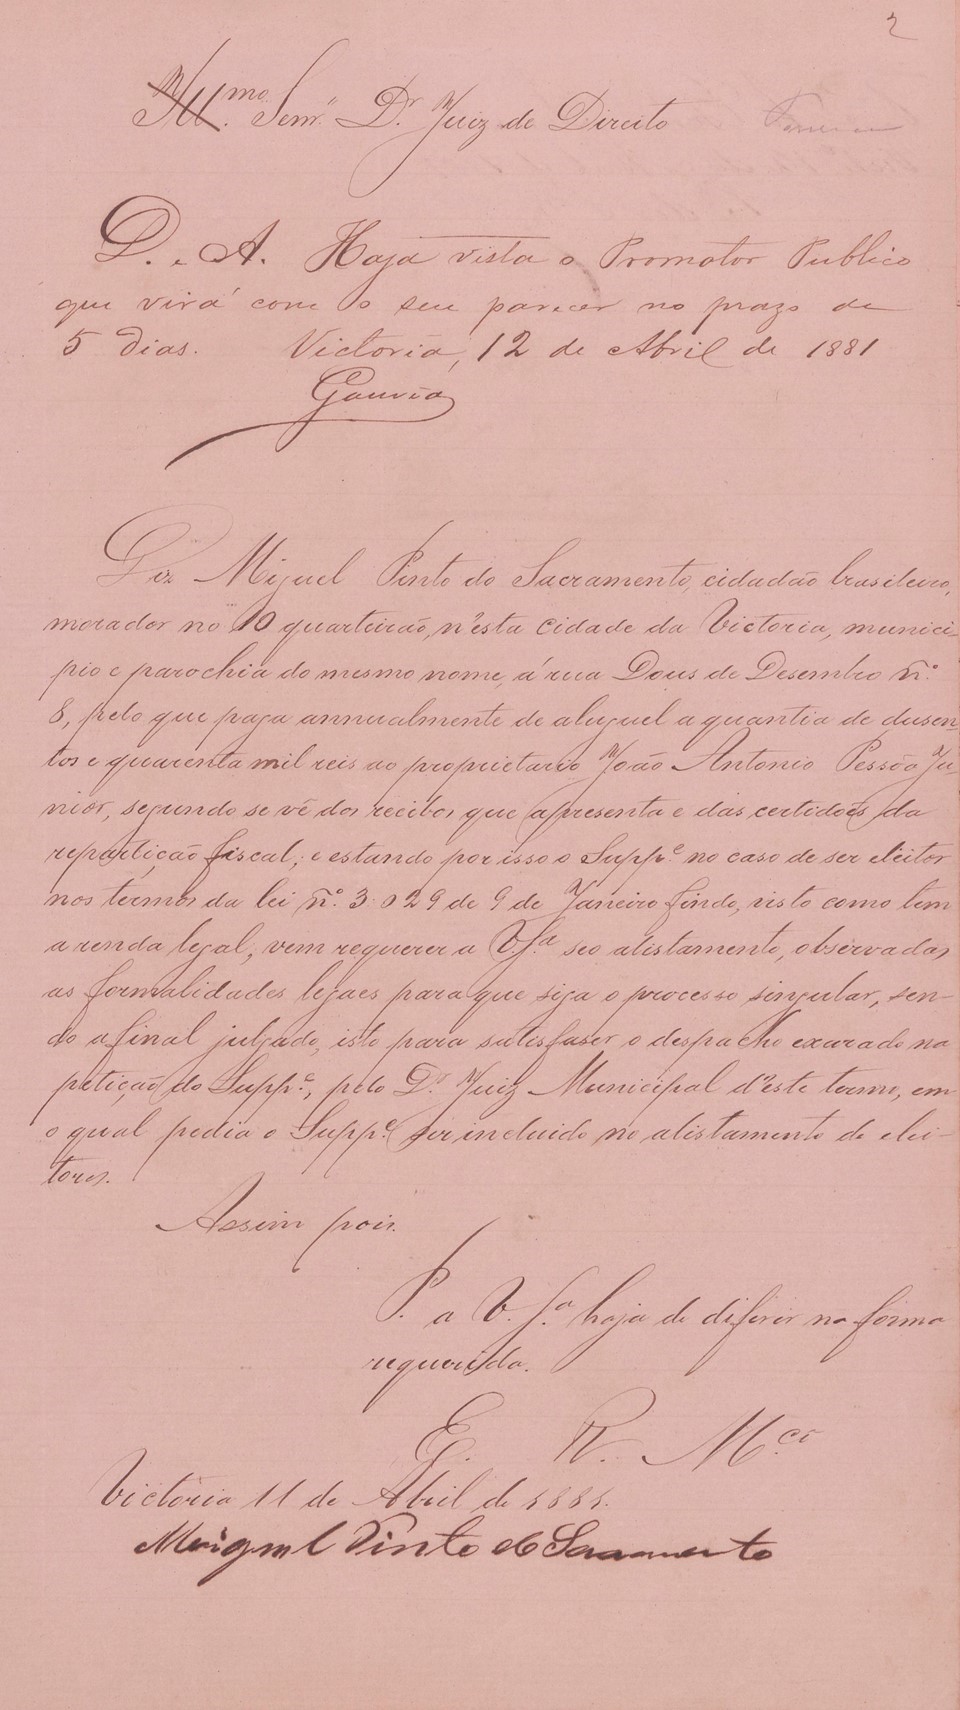 2
Illmo. Senr. Dr. Juiz de Direito
D. e A. Haja vista o Promotor Publico
que virá com o seu parecer no prazo de
5 dias. Victoria, 12 de Abril de 1881
Gouvêa
Diz Miguel Pinto do Sacramento, cidadão brasileiro,
morador no 10 quarteirão, n'esta cidade da Victoria, munici-
pio e parochia do mesmo nome, á rua Dous de Desembro nº.
8, pelo que paga annualmente de aluguel a quantia de dusen-
tos e quarenta mil reis ao proprietario João Antonio Pessôa Ju-
nior, segundo se vê dos recibos que apresenta e das certidoẽs da
repartição fiscal; e estando por isso o Suppe. no caso de ser eleitor
nos termos da lei nº. 3.029 de 9 de Janeiro findo, visto como tem
a renda legal, vem requerer a V.Sª. seo alistamento, observadas
as formalidades legaes para que siga o processo singular, sen-
do afinal julgado, isto para satisfaser o despacho exarado na
petição do Suppe., pelo Dr. Juiz Municipal d'este termo, em
o qual pedia o Suppe. ser incluido no alistamento de elei-
tores.
Assim pois.
P. a V.Sª. haja de diferir na forma
requerida.
E. R. Mcê.
Victoria 11 de Abril de 1881.
Meigml Pinto do Sacramento